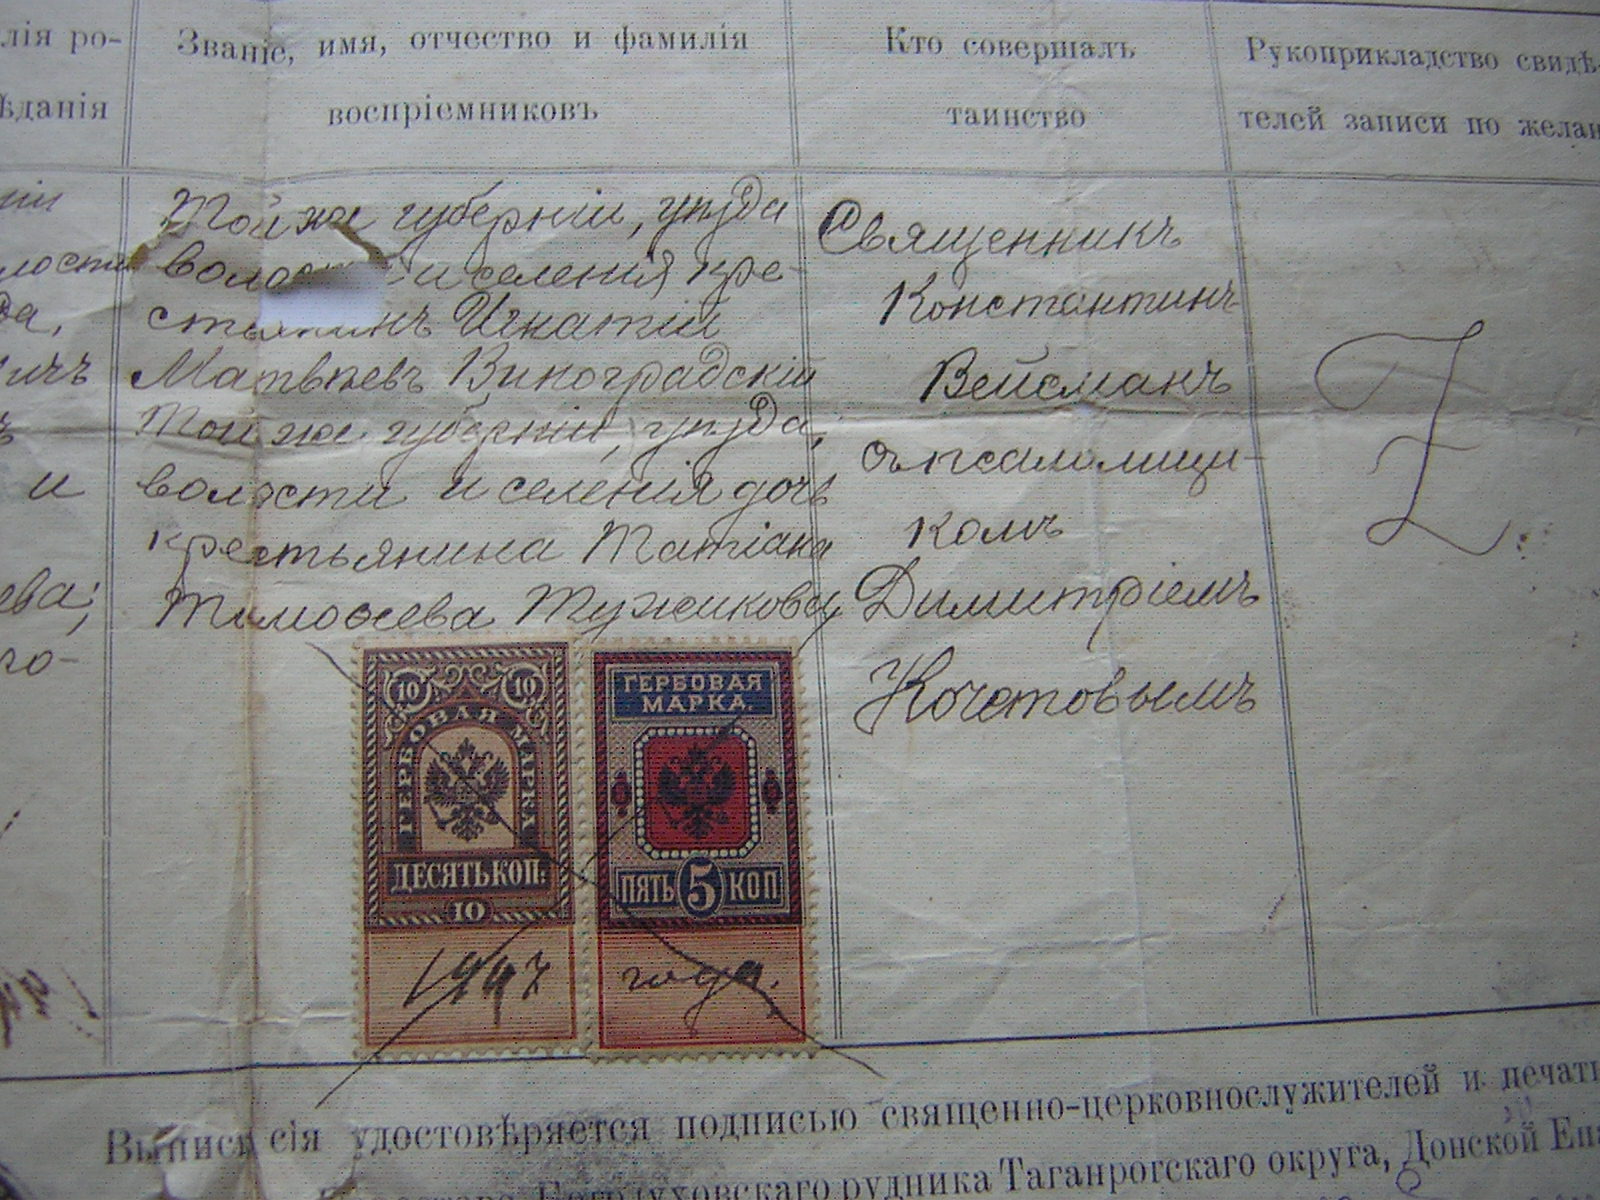 лія ро-
ѣданія
Званіе, имя, отчество и фамилія
воспріемниковъ
Кто совершалъ
таинство
Рукоприкладство свидѣ-
телей записи по желан
ніи
лости
да,
ичъ
ъ
и
ева;
го-
Той же губерніи, уѣзда
воло и селенія кре-
стьянинъ Игнатій
Матвѣевъ Виноградскій
Той же губерніи, уѣзда,
волости и селенія дочь
крестьянина Татіана
Тимоѳеева Тужикова
Священникъ
Константинъ
Вейсманъ
съ псаломщи-
комъ
Димитріемъ
Кочетовымъ
10 10
ГЕРБОВАЯ МАРКА
ДЕСЯТЬ КОП.
10
ГЕРБОВАЯ
МАРКА.
ПЯТЬ 5 КОП
1897
года.
Выписи сія удостовѣряется подписью священно-церковнослужителей и печать
рудника Таганрогскаго округа, Донской Еп